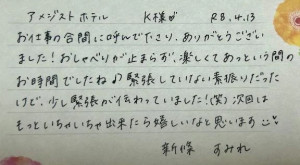 アメジストホテル K様♡ R8.4.13
お仕事の合間に呼んで下さり、ありがとうござい
ました！おしゃべりが止まらず、楽しくてあっという間の
お時間でしたね♪緊張していない素振りだった
けど、少し緊張が伝わっていました！(笑)次回は
もっといちゃいちゃ出来たら嬉しいなと思います
新條 すみれ